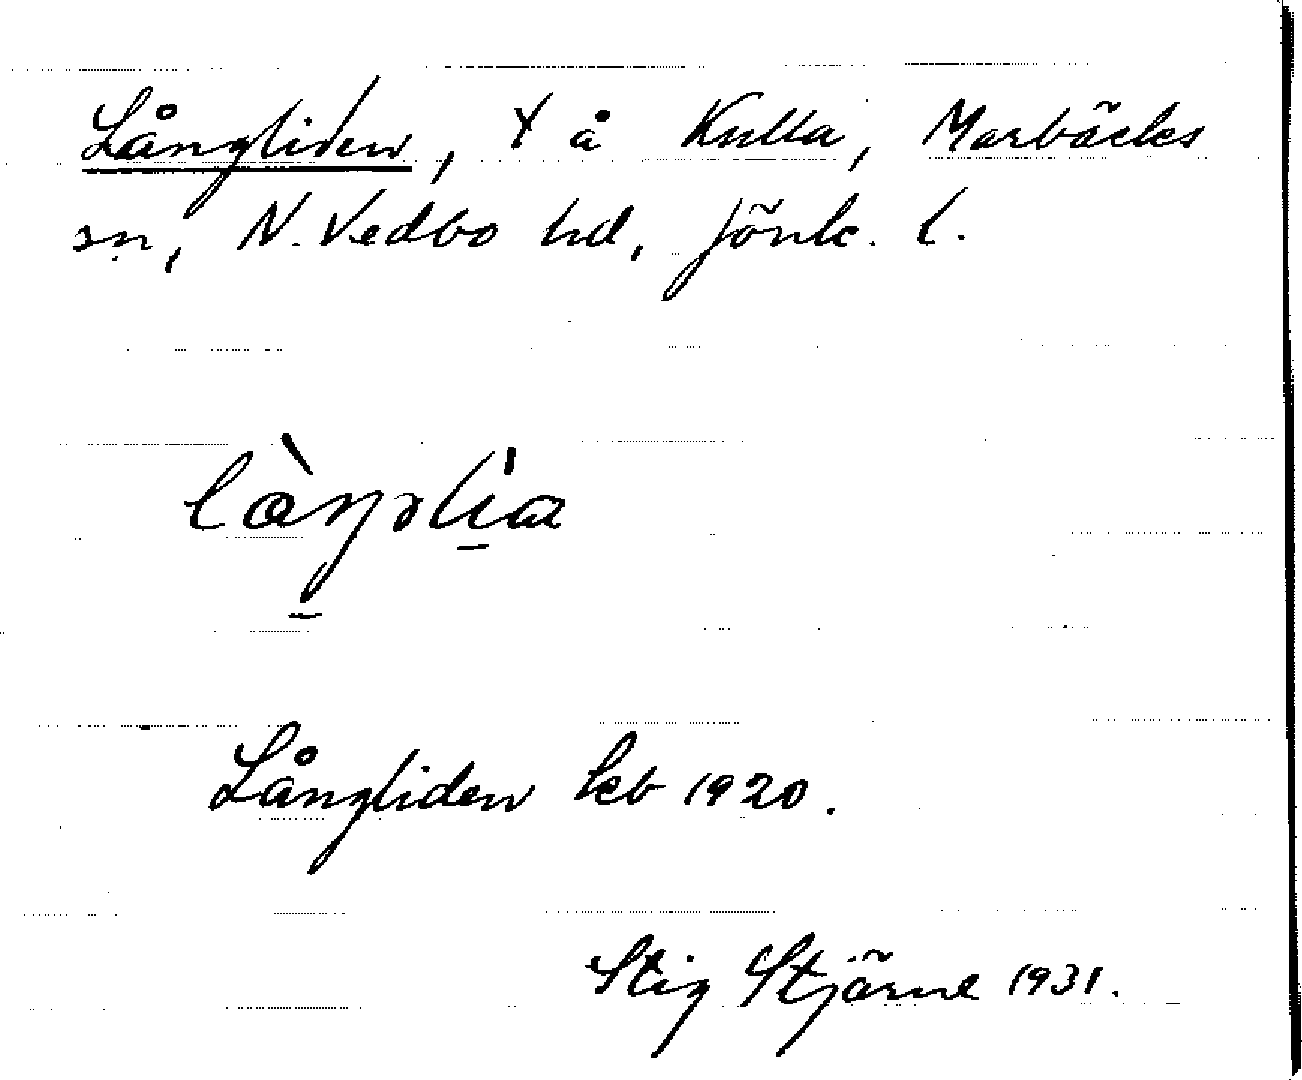 Långliden, † å Kulla, Marbäcks
sn, N. Vedbo hd, Jönk. l.
Långliden kb 1920.
Stig Stjärne 1931.